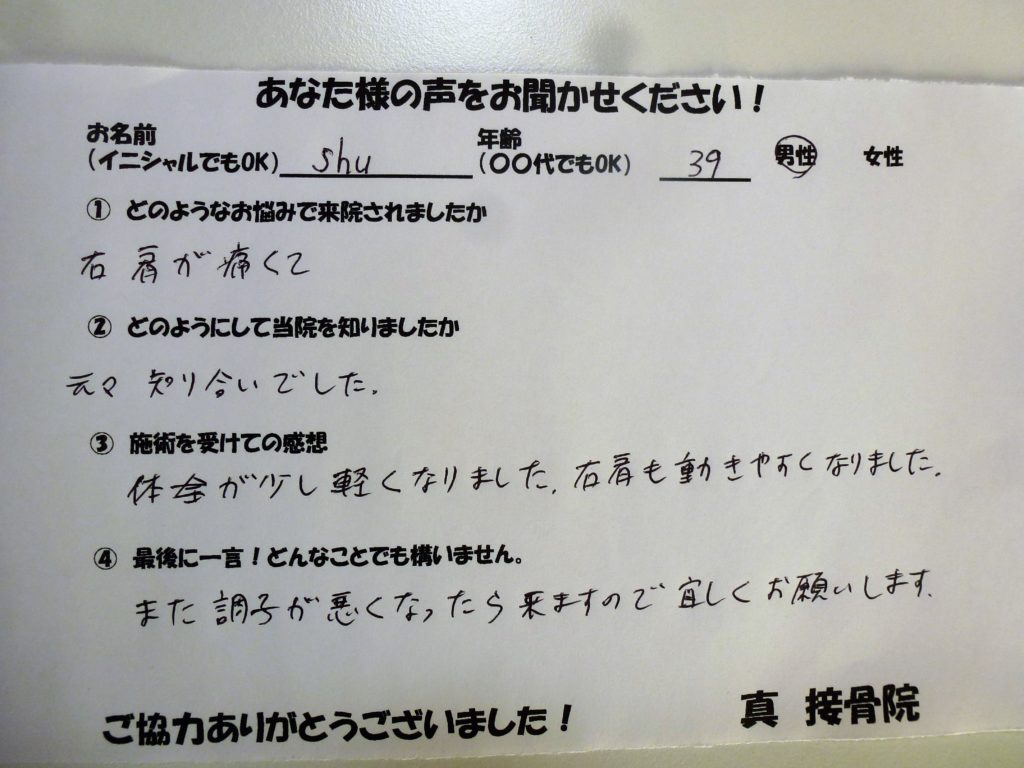 あなた様の声をお聞かせください！
お名前 年齢
(イニシャルでもOK) shu (〇〇代でもOK) 39 男性 女性
① どのようなお悩みで来院されましたか
右肩が痛くて
② どのようにして当院を知りましたか
元々 知り合いでした.
③ 施術を受けての感想
体全が少し軽くなりました. 右肩も動きやすくなりました.
④ 最後に一言！どんなことでも構いません。
また調子が悪くなったら来ますので宜しくお願いします.
ご協力ありがとうございました！ 真 接骨院